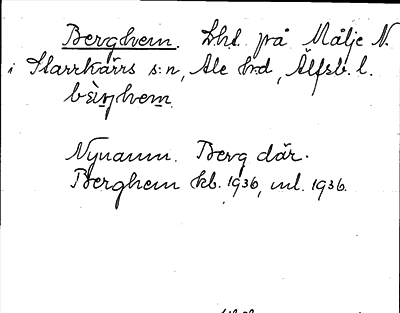 Berghem. Lht. på Målje N.
i Starrkärrs s:n, Ale hrd, Älfsb. l.
bær̀jhem

Nynamn. Berg där.
Berghem kb. 1936, ml. 1936.